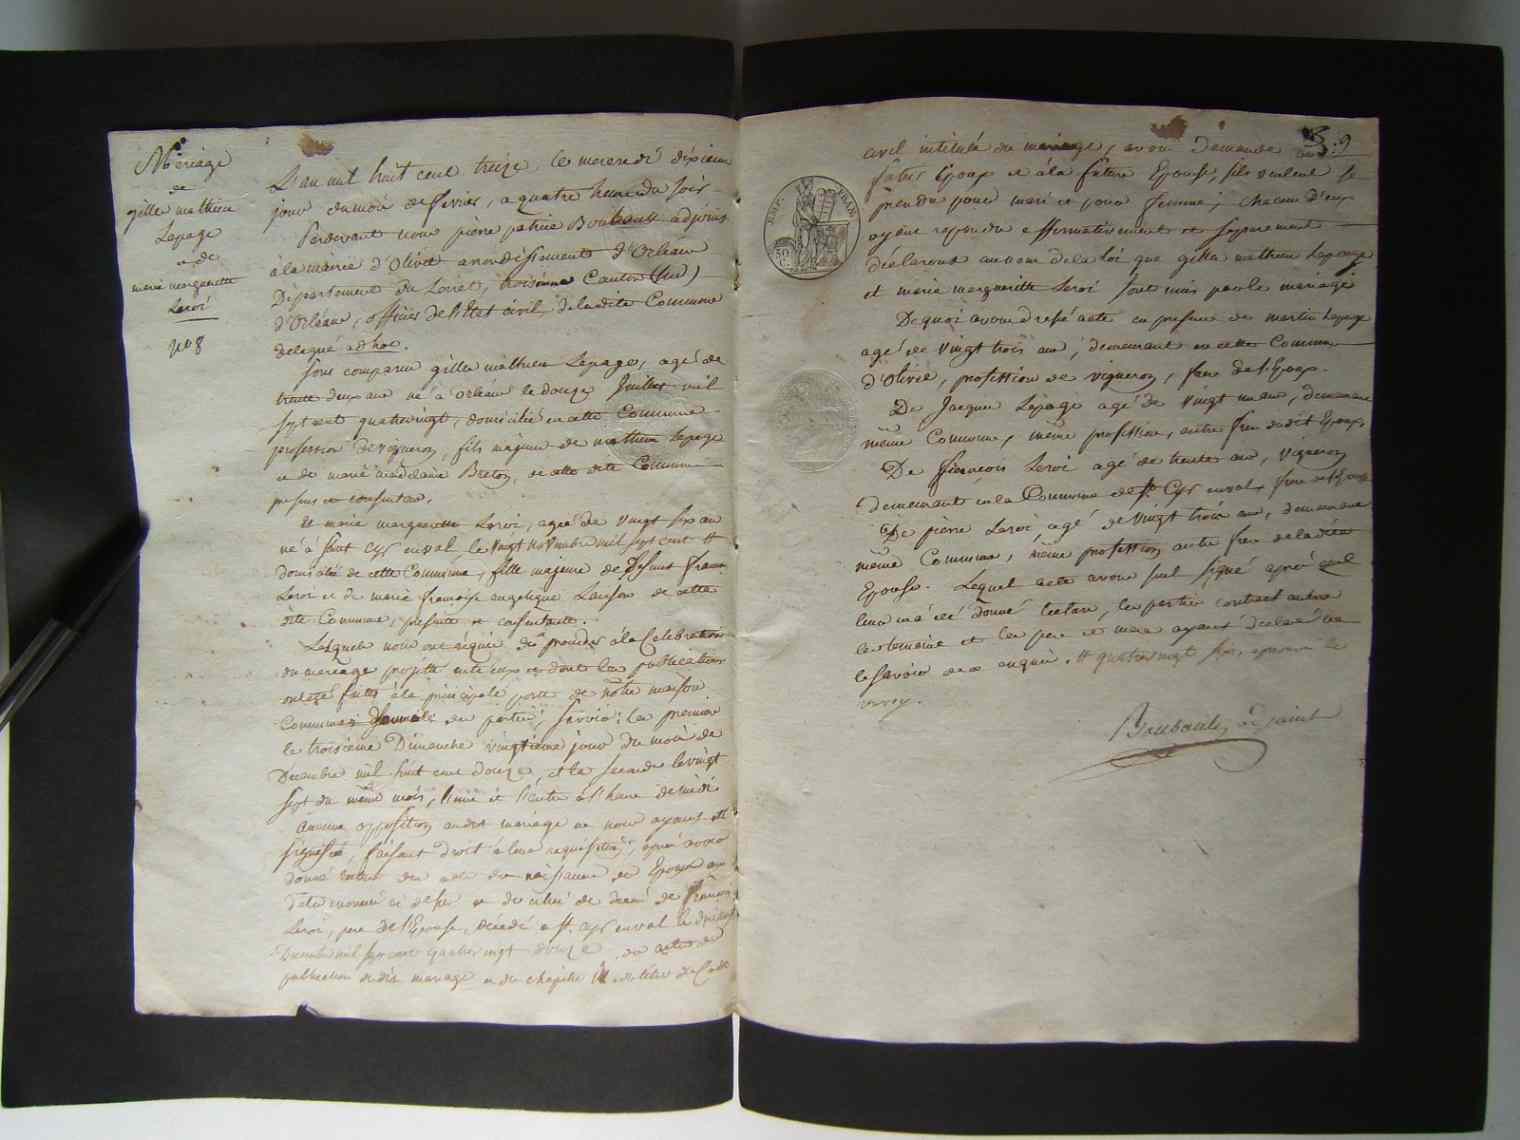 Mariage
de
gilles mathieu
Lepage
et de
marie marguerite
Leroi
N° 8
L'an mil huit cent treize le mercredi dixieme
jour du mois de fevrier, a quatre heure du soir
Perdevant nous pierre patrice adjoint
à la mairie d'Olivet arrondissement d'Orléans
Département du Loiret, troisieme Canton (sud)
d'Orléans, officier de l'Etat civil, de la dite Commune
delegué ad hoc.
sont comparus gilles mathieu Lepage, agé de
trente deux ans né à orléans le douze Juillet mil
sept cent quatrevingt, domicilié en cette Commune
profession de vigneron, fils majeur de mathieu Lepage
et de marie madelaine Breton, de cette dite Commune
presens et consentans.
Et marie marguerite Leroi, agée de vingt six ans
né à saint Cyr enval le vingt novembre mil sept cent #
domiciliée de cette Commune, fille majeure de defunt
Leroi et de marie françoise angelique de cette
dite Commune, presente et consentante.
Lesquels nous ont requis de proceder à la Celebration
du mariage projetté entre eux et dont les publications
ont été faites à la principale porte de notre maison
Commune des parties, savoir; la premiere
le troisieme Dimanche vingtieme jour du mois de
Decembre mil huit cent douze, et la seconde le vingt
sept du même mois, l'une et l'autre à l'heure de midi
Aucune opposition audit mariage ne nous ayant été
signifié, faisant droit à leur requisition, après avoir
donné lecture des actes de naissance des Epoux
et de celui de decès de
Leroi, pere de l'Epouse, décédé à st. Cyr enval le
Decembre mil sept cent quatre vingt douze, des actes de
publication dudit mariage et du chapitre du titre du Code
civil intitulé du mariage, avons demandé au
futur Epoux et à la future Epouse, s'ils veulent se
prendre pour mari et pour femme; chacun d'eux
ayant repondu affirmativement et separement
déclarons au nom de la loi que gilles mathieu Lepage
et marie marguerite Leroi sont unis par le mariage
De quoi avons dressé acte en presence de martin Lepage
agé de vingt trois ans, demeurant en cette Commune
d'Olivet, profession de vigneron, frere de l'Epoux.
De Jacques Lepage agé de vingt un ans, demeurant
même Commune, même profession, autre frere dudit Epoux
De françois Leroi agé de trente ans, vigneron
demeurant en la Commune de st. Cyr enval, frere de l'Epouse
De pierre Leroi agé de vingt trois ans, demeurant
même Commune, même profession autre frere de la dite
Epouse. Lequel acte avons seul signé après qu'il
leur a été donné lecture, les parties contractantes
les temoins et les pere et mere ayant declaré ne
le savoir de ce enquis. # quatre vingt six, approuvé le
renvoy.
adjoint
EMP. FRAN.
50
C.